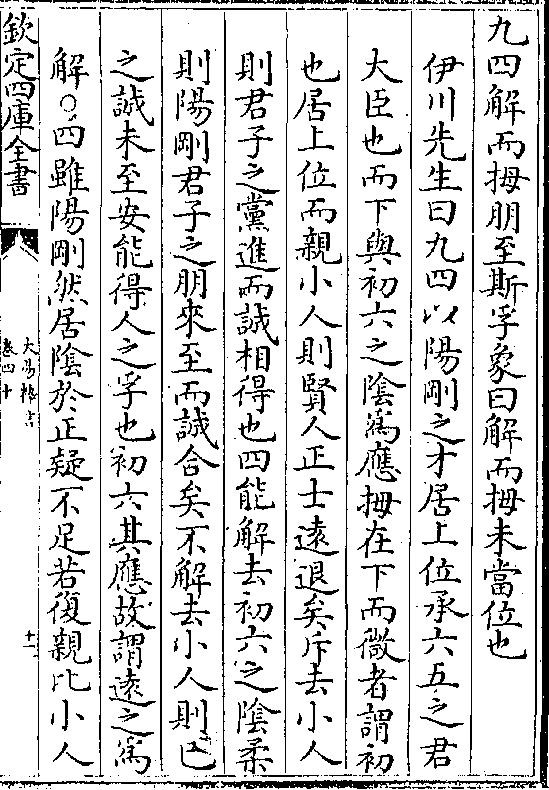 九四解而拇朋至斯孚象曰解而拇未當位也
伊川先生曰九四以陽剛之才居上位承六五之君
大臣也而下與初六之陰為應拇在下而微者謂初
也居上位而親小人則賢人正士遠退矣斥去小人
則君子之黨進而誠相得也四能解去初六之陰柔
則陽剛君子之朋來至而誠合矣不解去小人則已
之誠未至安能得人之孚也初六其應故謂遠之為
解○四雖陽剛然居陰於正疑不足若復親比小人
欽定四庫全書
大易擇言
卷四十
十一